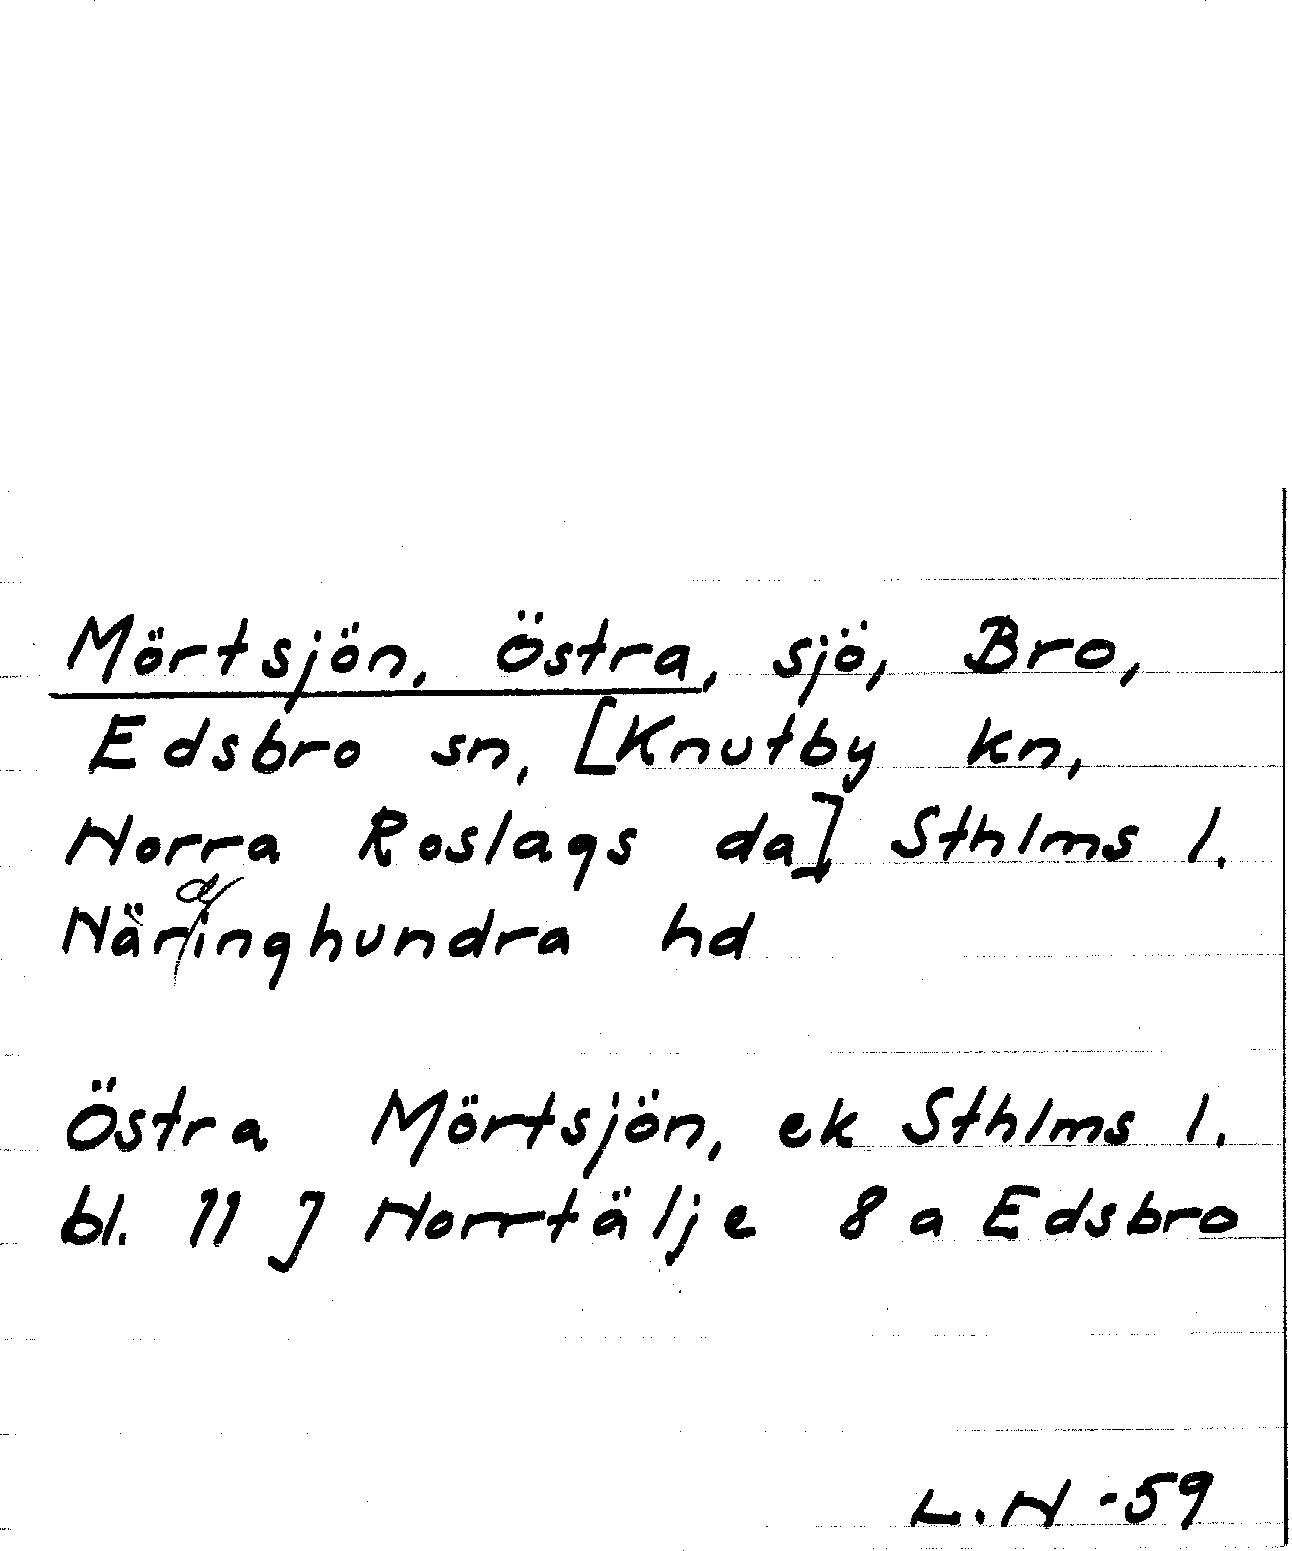 Mörtsjön, Östra, sjö, Bro,
Edsbro sn, [Knutby kn,
Norra Roslags da] Sthlms l.
Närdinghundra hd
Östra Mörtsjön, ek Sthlms l.
bl. 11 J Norrtälje 8 a Edsbro
L.N -59